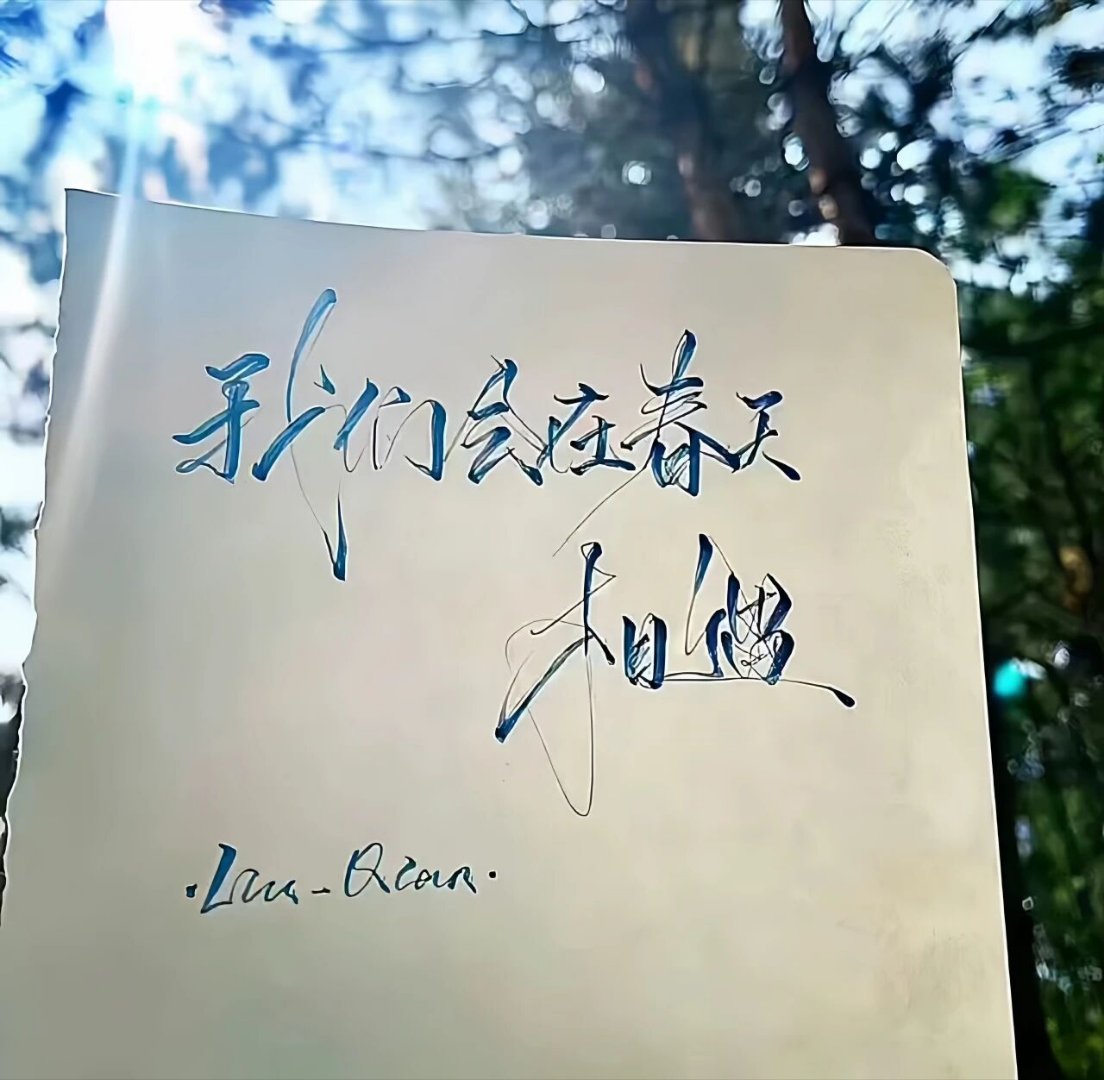 我们会在春天
相遇
Qian